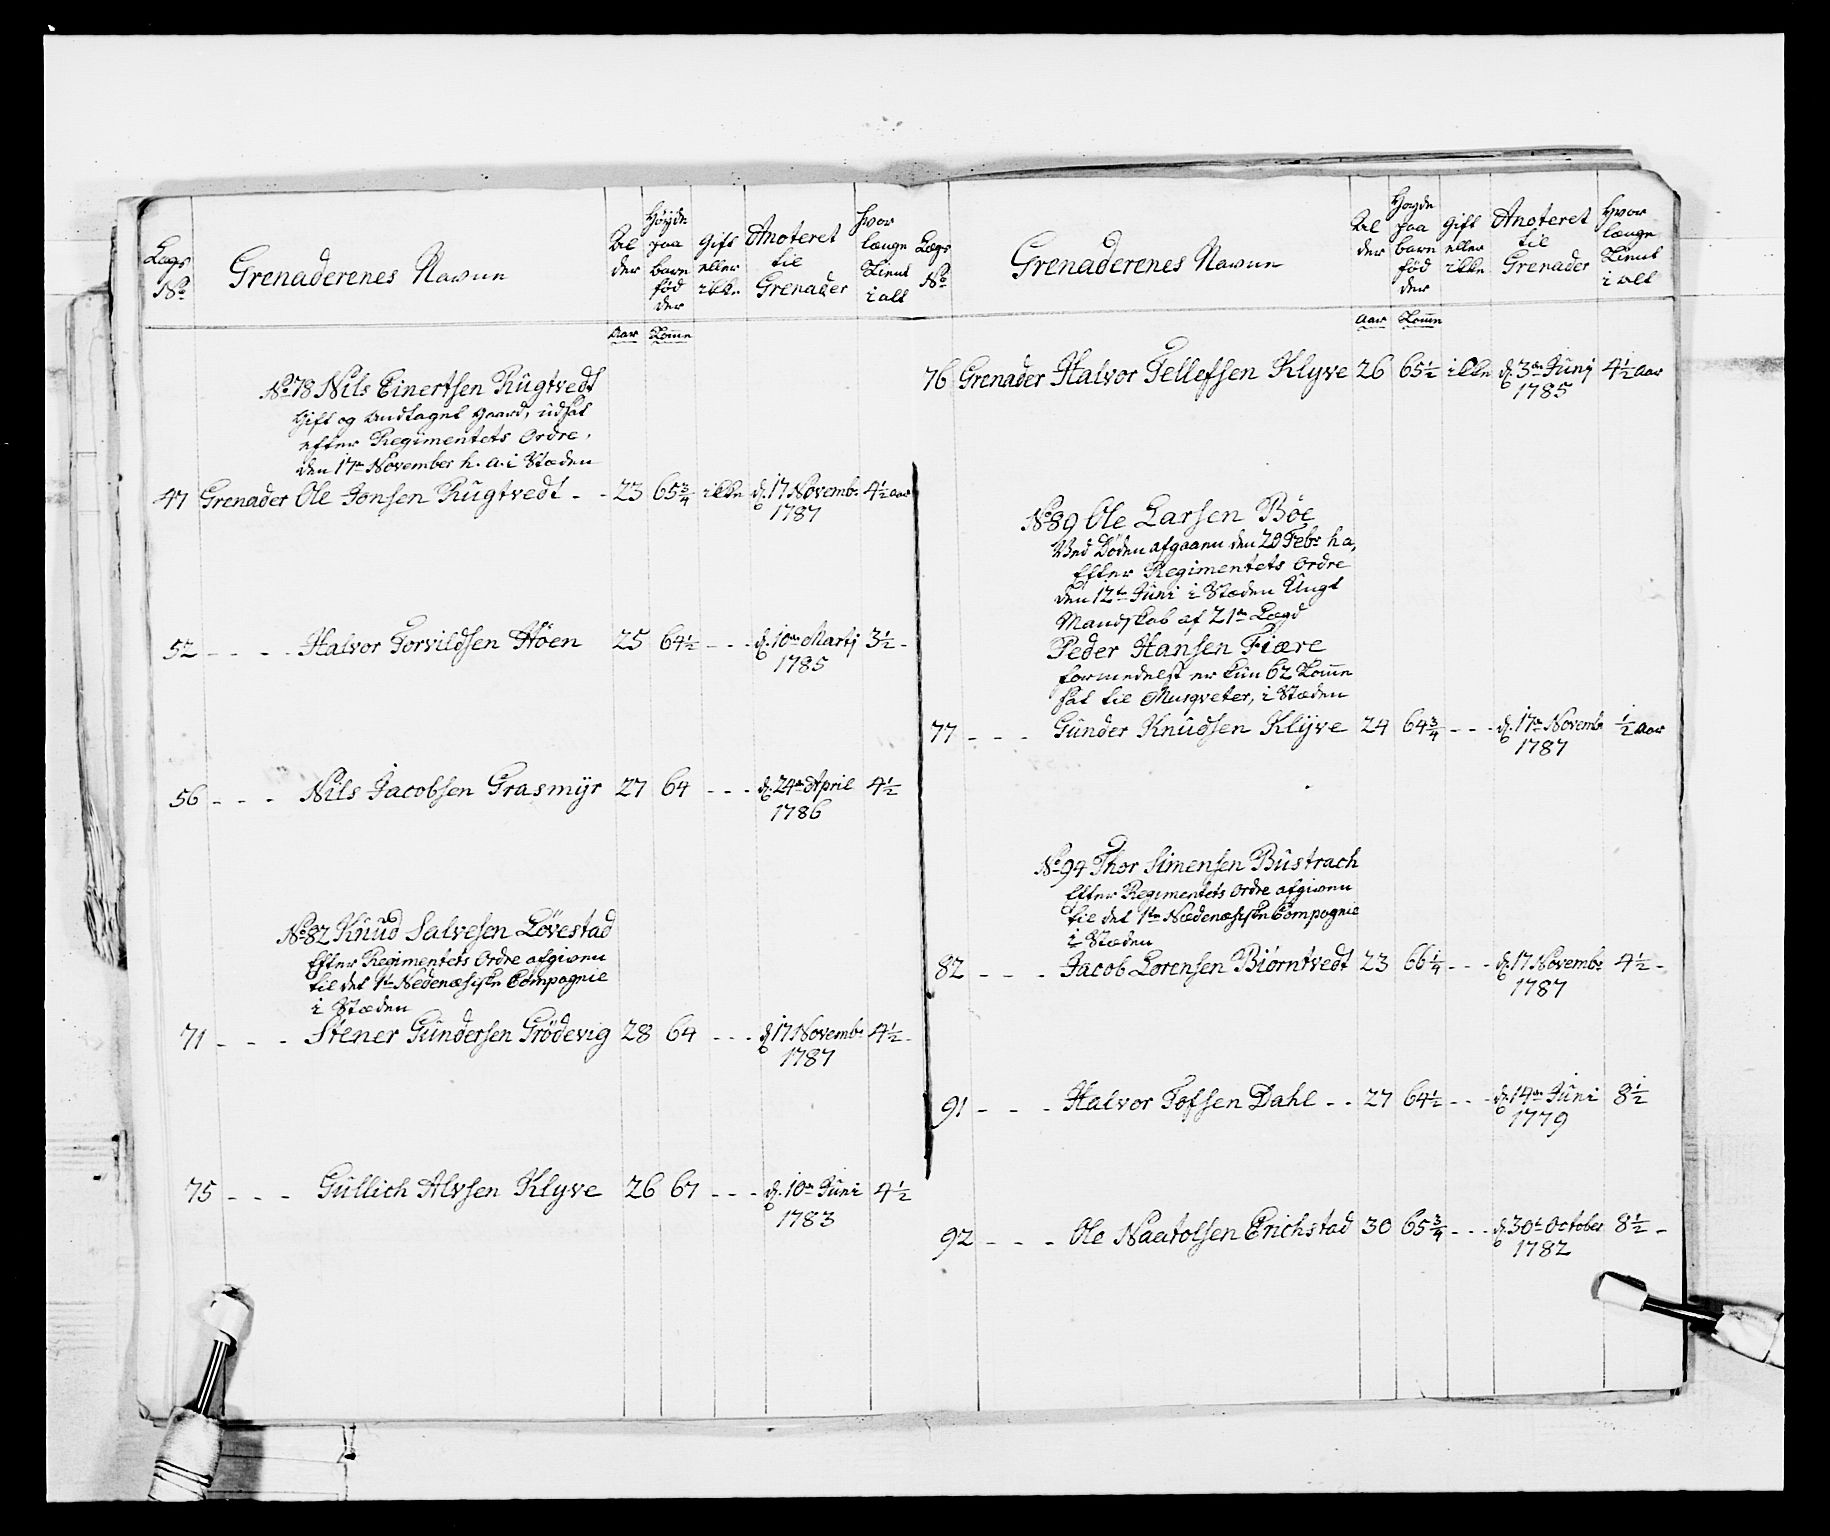 Lægs
No
Grenaderenes Navne
Al
der
Høyde
paa
bare
fød
der
Gift
eller
ikke
Anoteret
til
Grenader
hvor
længe
Tient
i alt
Aar
Tomme
No 78 Nils Einertsen Rugtvedt
Gift og andtaget Gaard, udsat
efter Regimentets Ordre,
den 17de November h. a. i Stæden
47 Grenader Ole Jonsen Rugtvedt - - 23 65¾ ikke d. 17 Novembr 4½ aar
1787
52 - - - - Halvor Torvildsen Höen 25 64½ - - - d. 10de Martj 3½ -
1785
56 - - - Nils Jacobsen Grasmyr 27 64 - - - d. 24de April 4½
1786
No 82 Knud Salvesen Løvestad
Efter Regimentets Ordre afgiven
til det 1te Nedenæsiske Compagnie
i Stæden
71 - - - Stener Gundersen Grödevig 28 64 - - - d. 17 Novembr 4½ -
1787
75 - - - Gullich Alvsen Klyve 26 67 - - - d. 10de Juni 4½
1783
Lægs
No
Grenaderenes Navne
Al
der
Høyde
paa
bare
fød
der
Gift
eller
ikke
Anoteret
til
Grenader
Hvor
længe
Tient
i alt
Aar
Tomme
76 Grenader Halvor Tellefsen Klyve 26 65½ ikke d. 3de Junj 4½ aar
1785
No 89 Ole Larsen Böe
Ved Döden afgaaen den 20 Febr h a,
Efter Regimentets Ordre
den 12te Juni i Stæden Ungt
Mandskab af 21de Lægd
Peder Hansen Fiære
formedelst er kun 62 Tomme
sat til Musqveter, i Stæden
77 - - - Gunder Knudsen Klyve 24 64¾ - - - d. 17de Novembr ½ aar
1787
No 94 Thor Simensen Bustrach
Efter Regimentets Ordre afgiven
til det 1te Nædenæsiske Compagnie
i Stæden
82 - - - Jacob Lorensen Biörntvedt 23 66¼ - - - d. 17 Novembr 4½ -
1787
91 - - - Halvor Tofsen Dahl - - 27 64½ - - - d. 14de Juni 8½
1779
92 - - - Ole Naatolsen Erichstad 30 65¾ - - - d. 30te October 8½ -
1782